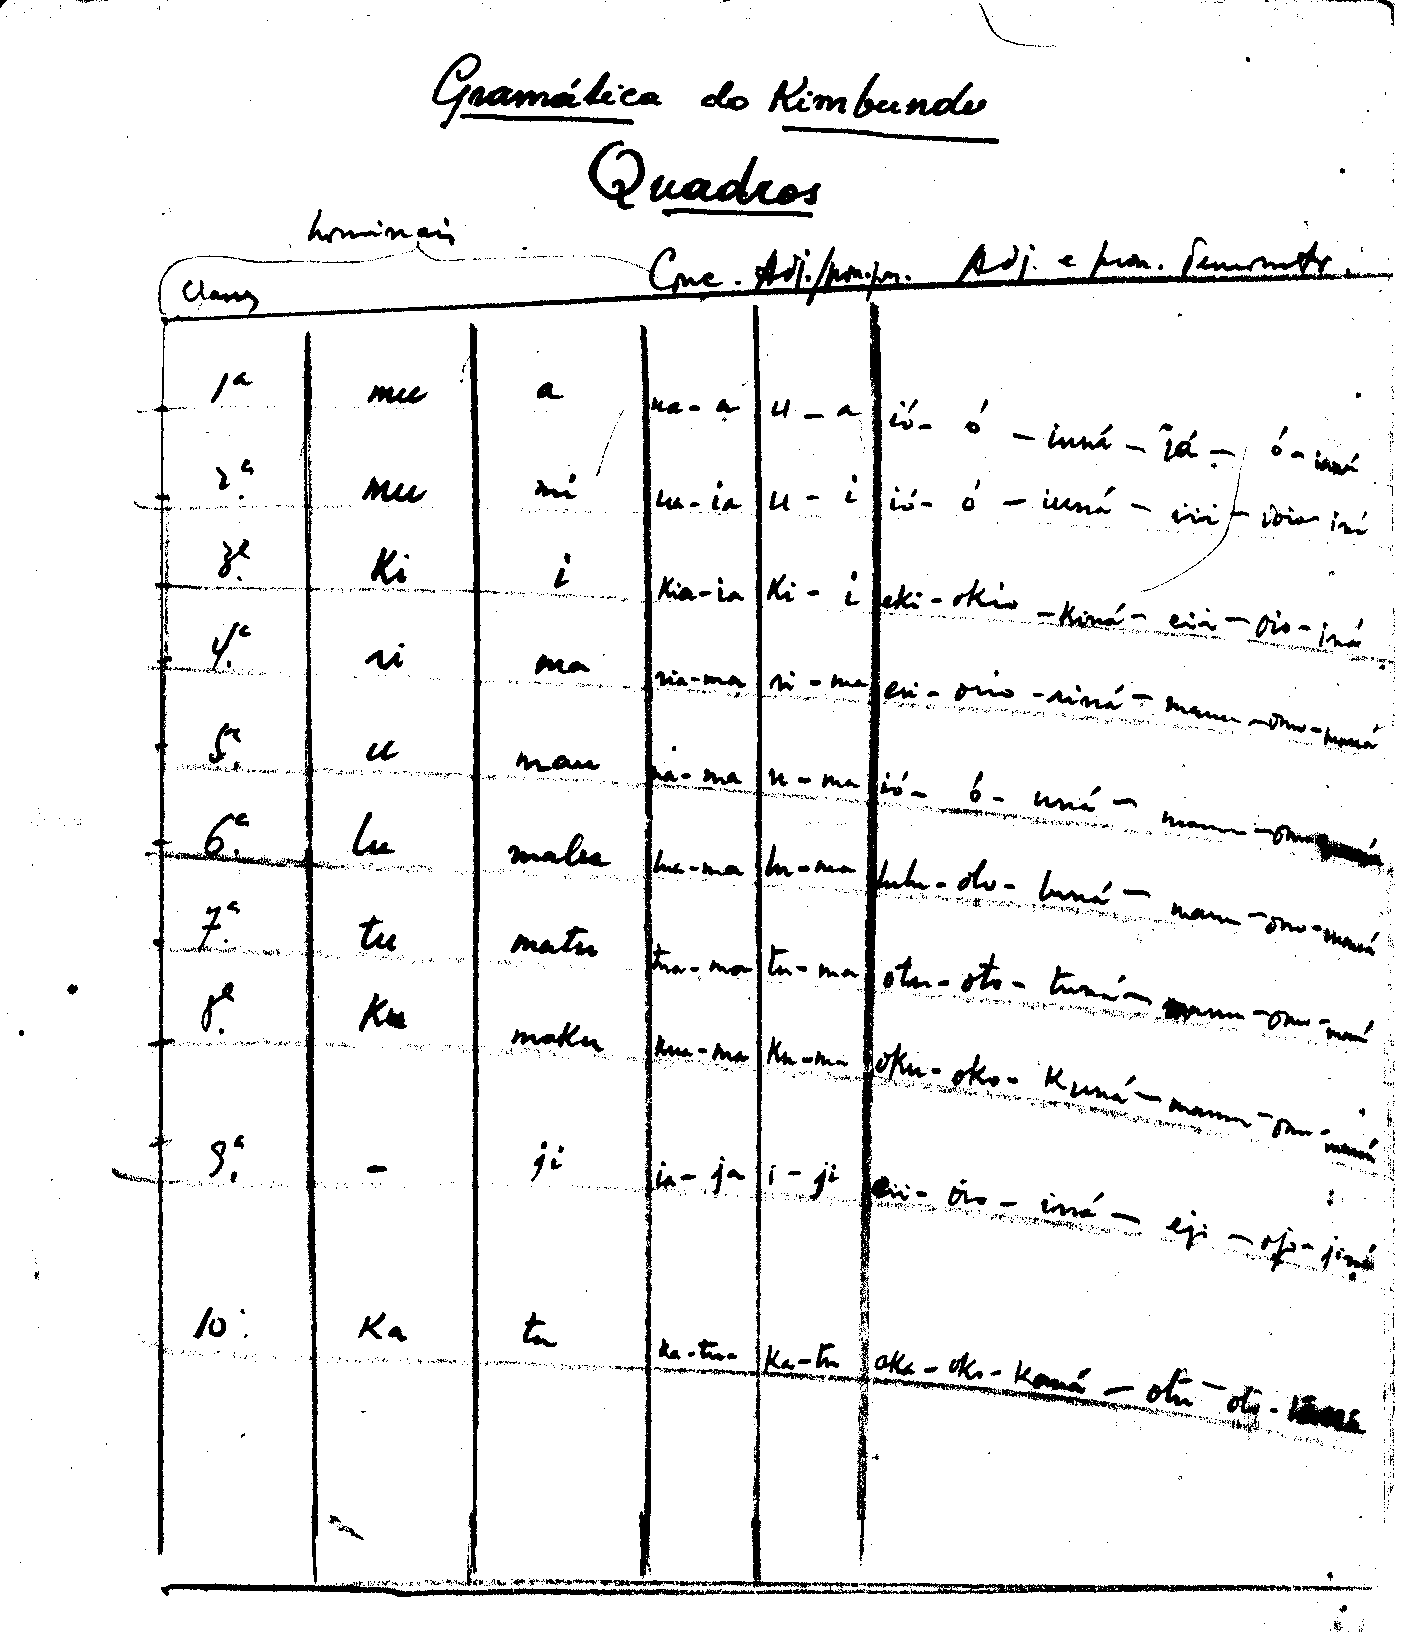 Gramática do Kimbundu
Quadros
nominais
Classes Conc. Adj./pron.pos. Adj. e pron. demonstr.
1ª mu a ua - a u - a ió - ó - iuná - ó - aná
2.ª mu mi ua - ia u - i ió - ó - iuná - iii - iná
3.ª Ki i Kia - ia Ki - i eki - okio - Kiná - eii - oio - iná
4.ª ri ma ria - ma ri - ma eri - orio - riná - mamu - omo - maná
5.ª u mau ua - ma u - ma ió - ó - uná - mamu - omo - maná
6.ª lu malu lua - ma lu - ma lulu - olo - luná - mamu - omo - maná
7.ª tu matu tua - ma tu - ma otu - oto - tuná - mamu - omo - maná
8.ª Ku maku kua - ma Ku - ma oku - oko - Kuná - mamu - omo - maná
9.ª - ji ia - ja i - ji eii - óio - iná - eji - ojo - jiná
10.ª Ka tu ka - tu - Ka - tu oka - oko - Kaná - otu - oto -